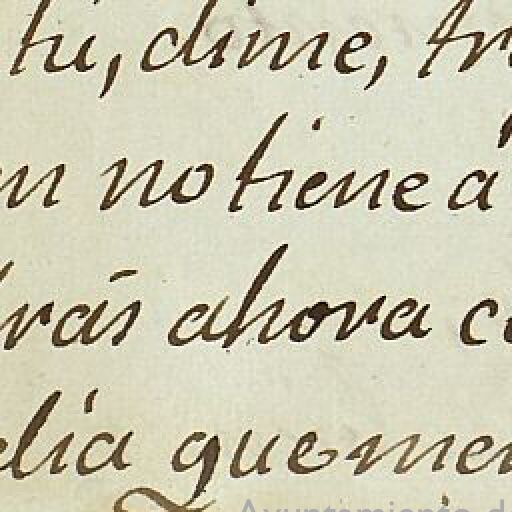 tú, dime, tr
en no tiene á
drás ahora co
elia que men
Ayuntamiento de